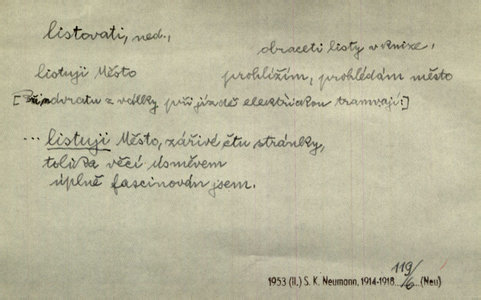 listovati, ned.,
obraceti listy v knize.
listuji Město prohlížím, prohlédám město
[Při návratu z války při jízdě elektrickou tramvají:]
... listuji Město, zářivé čtu stránky,
tolika věcí úsměvem
úplně fascinován jsem.
119/6
1953 (II.) S. K. Neumann, 1914-1918 (Neu)